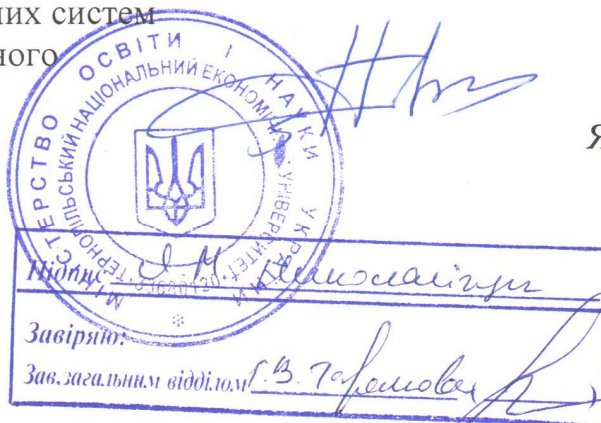 них систем
ного
Я
МІНІСТЕРСТВО ОСВІТИ І НАУКИ УКРАЇНИ
ТЕРНОПІЛЬСЬКИЙ НАЦІОНАЛЬНИЙ ЕКОНОМІЧНИЙ УНІВЕРСИТЕТ
Підпис
Завіряю:
Зав.загальним відділом Г.В.